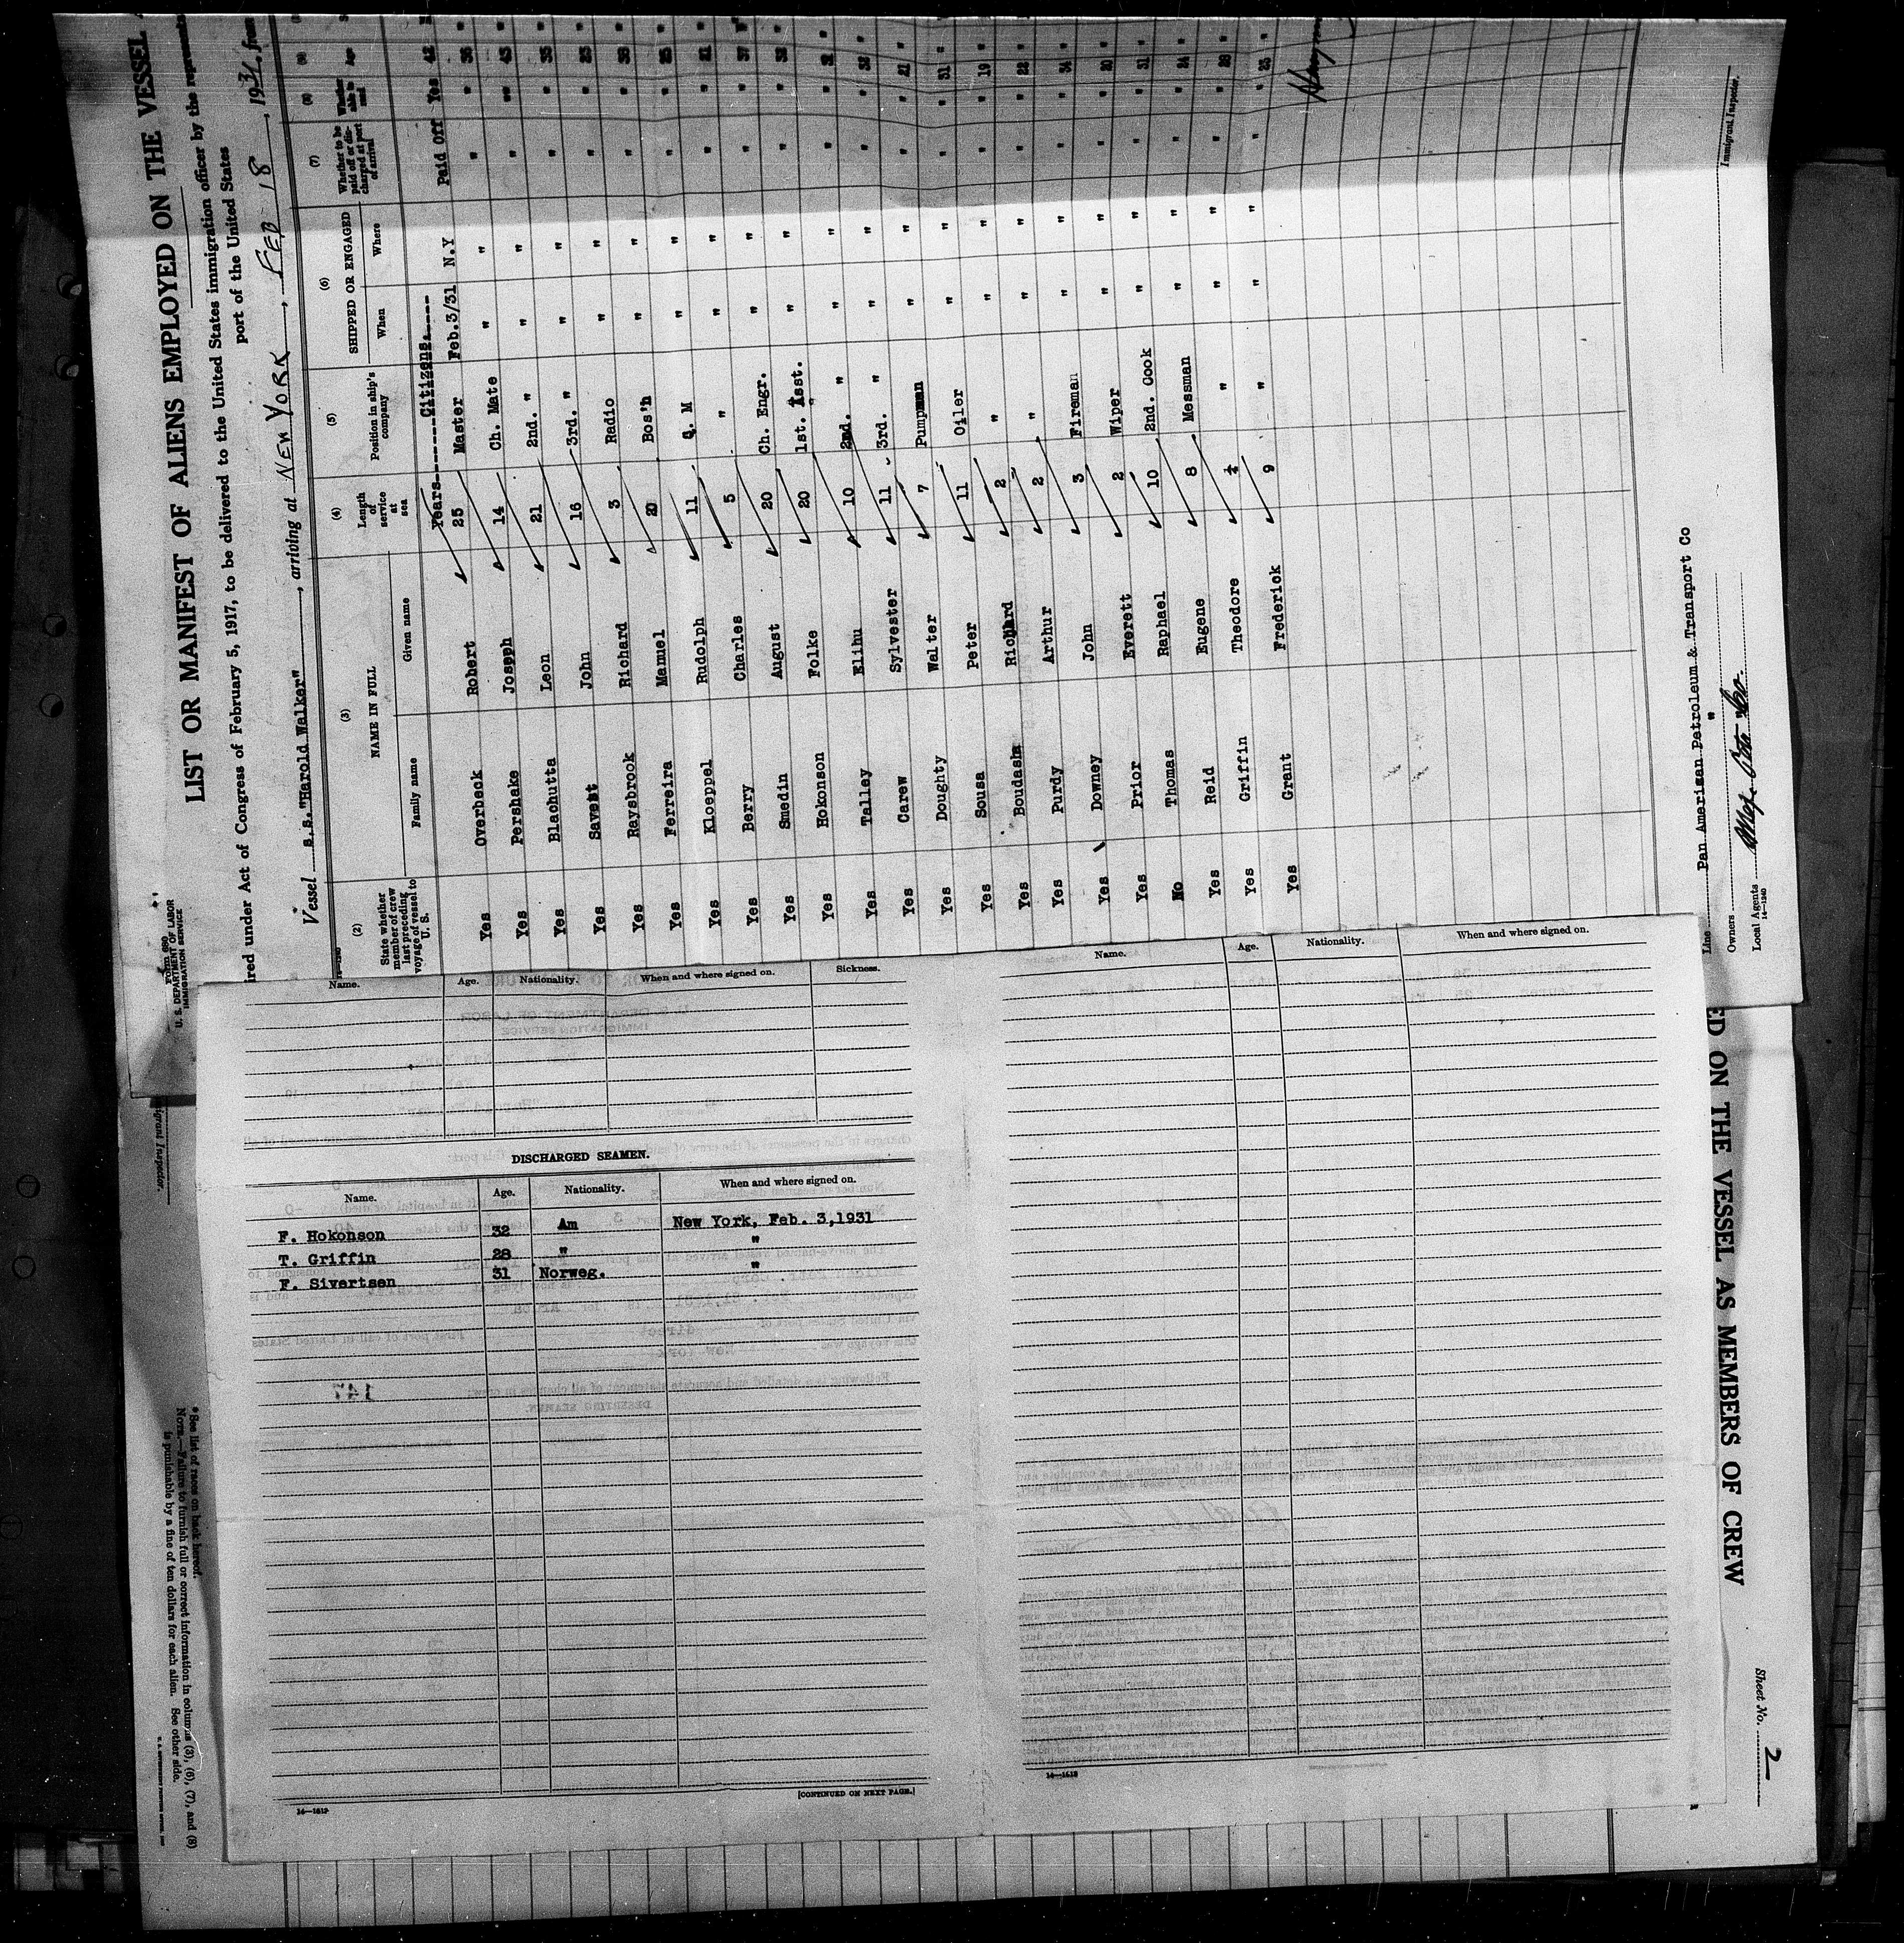 LIST OR MANIFEST OF ALIENS EMPLOYED ON THE VESSEL
Form 680
U. S. DEPARTMENT OF LABOR
IMMIGRATION SERVICE
ired under Act of Congress of February 5, 1917, to be delivered to the United States immigration officer by the representa
port of the United States
Vessel s.s."Harold Walker", arriving at NEW YORK, FEB 18, 1931, from
(2) (3) (4) (5) (6) (7) (8) (9)
State whether member of crew last preceding voyage of vessel to U. S.
NAME IN FULL
Family name Given name
Length of service at sea
Position in ship's company
SHIPPED OR ENGAGED
When Where
Whether to be paid off or discharged at port of arrival
Whether able to read
Age
Years------Citizens.----
Yes Overbeck Robert 25 Master Feb.3/31 N.Y Paid Off Yes 42
Yes Pershake Joseph 14 Ch. Mate " " " " 36
Yes Blachutta Leon 21 2nd. " " " " " 43
Yes Savent John 16 3rd. " " " " " 35
Yes Raysbrook Richard 3 Radio " " " " 23
Yes Ferreira Manuel 20 Bos'n " " " " 38
Yes Kloeppel Rudolph 11 Q. M " " " " 25
Yes Berry Charles 5 " " " " " 21
Yes Smedin August 20 Ch. Engr. " " " " 37
Yes Hokonson Folke 20 1st. Asst. " " " " 32
Yes Talley Elihu 10 2nd. " " " " "
Yes Carew Sylvester 11 3rd. " " " " "
Yes Doughty Walter 7 Pumpman " " " " 21
Yes Sousa Peter 11 Oiler " " " " 31
Yes Boudash Richard 2 " " " " " 19
Yes Purdy Arthur 2 " " " " " 22
Yes Downey John 3 Fireman " " " " 34
Yes Prior Everett 2 Wiper " " " " 20
No Thomas Raphael 10 2nd. Cook " " " " 31
Yes Reid Eugene 8 Messman " " " " 24
Yes Griffin Theodore " " " " " 28
Yes Grant Frederick 9 " " " " " 25
Line Pan American Petroleum & Transport Co
Owners "
Local Agents
14—1240
Immigrant Inspector.
Name. Age. Nationality. When and where signed on. Sickness.
DISCHARGED SEAMEN.
Name. Age. Nationality. When and where signed on.
F. Hokonson 32 Am New York, Feb. 3,1931
T. Griffin 28 " "
F. Sivertsen 31 Norweg. "
[CONTINUED ON NEXT PAGE.]
14—1613
Name. Age. Nationality. When and where signed on.
14—1613
ED ON THE VESSEL AS MEMBERS OF CREW
Sheet No. 2
igrant Inspector.
*See list of races on back hereof.
NOTE.—Failure to furnish full or correct information in columns (3), (5), (6), (7), and (8)
is punishable by a fine of ten dollars for each alien. See other side.